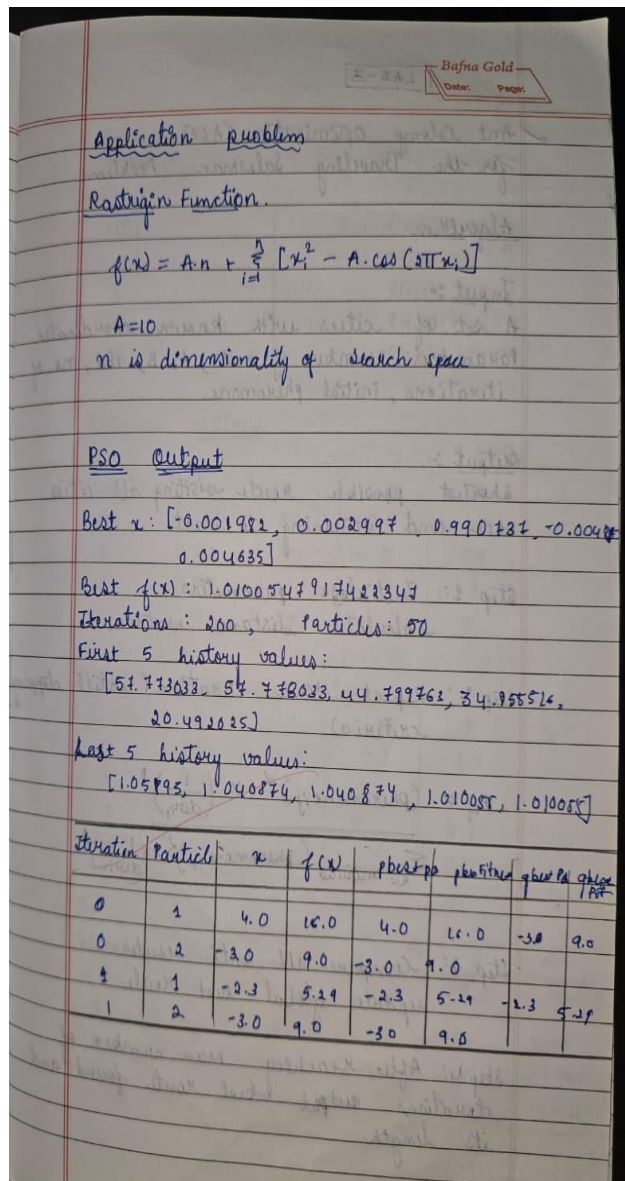 Bafna Gold
Date: Page:
Application problem
Rastrigin Function.
f(x) = A.n + Σ [xi² - A.cos(2πxi)]
n
i=1
A=10
n is dimensionality of search space
PSO Output
Best x : [-0.001982, 0.002997, 0.990737, -0.004
0.004635]
Best f(x) : 1.0100547917422347
Iterations : 200, Particles: 50
First 5 history values :
[57.773033, 57.773033, 44.799762, 34.955516,
20.492025]
Last 5 history values:
[1.05895, 1.040874, 1.040874, 1.010055, 1.010055]
Iteration Particle x f(x) pbest po pbestfitness gbest Po gbest
0 1 4.0 16.0 4.0 16.0 -3.0 9.0
0 2 -3.0 9.0 -3.0 9.0
1 1 -2.3 5.29 -2.3 5.29 -2.3 5.29
1 2 -3.0 9.0 -30 9.0